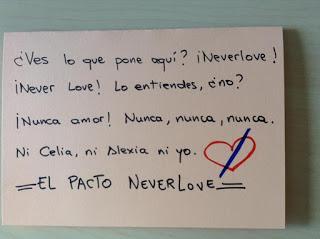 ¿Ves lo que pone aquí? ¡Neverlove!
¡Never Love! Lo entiendes, ¿no?
¡Nunca amor! Nunca, nunca, nunca.
Ni Celia, ni Alexia ni yo.
EL PACTO NEVERLOVE